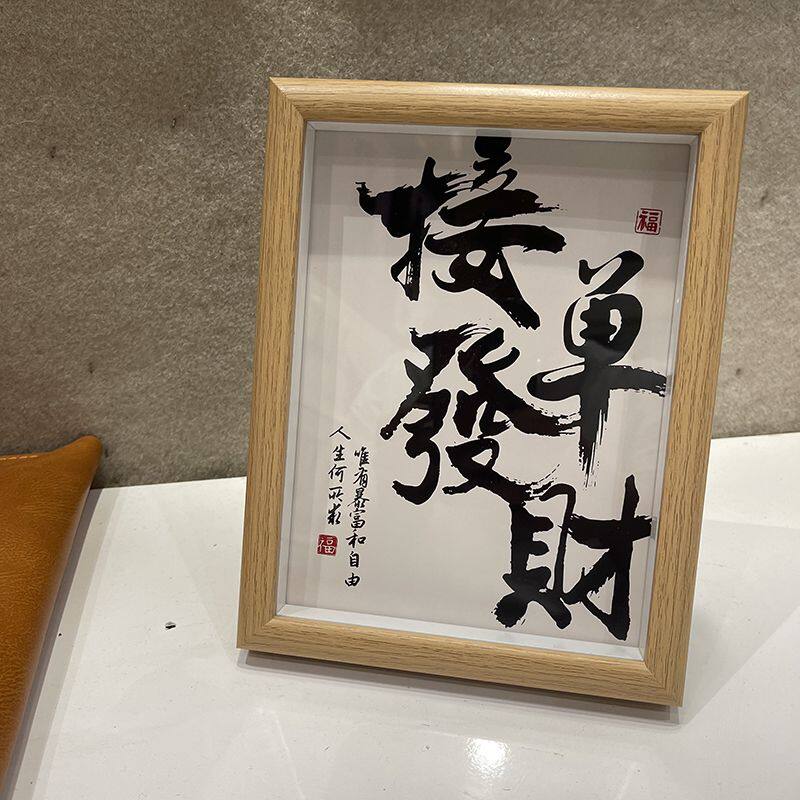 接单發財
福
人生何所求
唯有暴富和自由
福